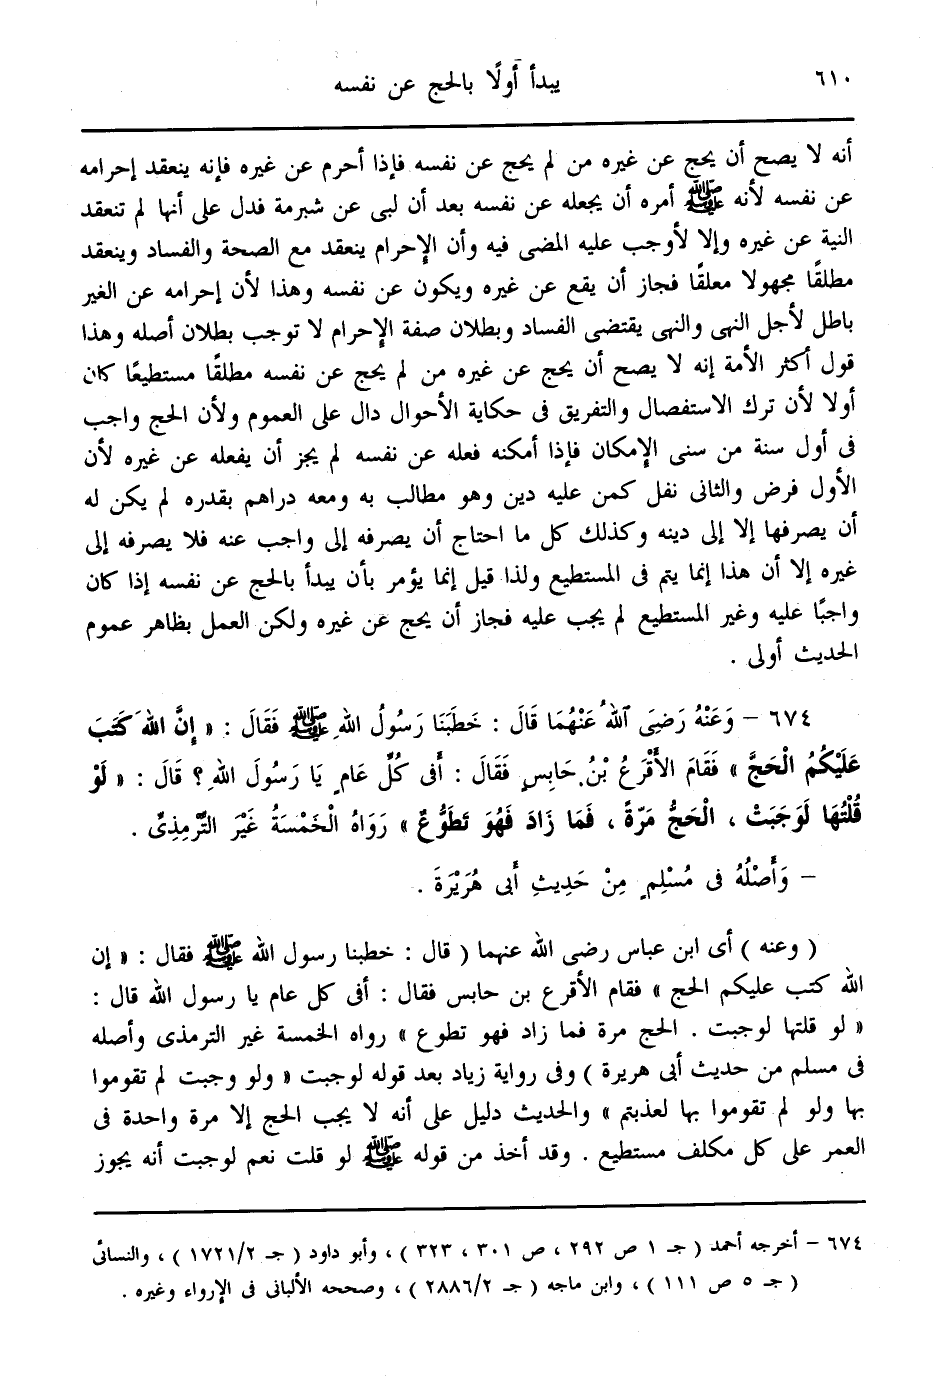 ٦١٠
يبدأ أولًا بالحج عن نفسه
أنه لا يصح أن يحج عن غيره من لم يحج عن نفسه فإذا أحرم عن غيره فإنه ينعقد إحرامه
عن نفسه لأنه ﷺ أمره أن يجعله عن نفسه بعد أن لبى عن شبرمة فدل على أنها لم تنعقد
النية عن غيره وإلا لأوجب عليه المضى فيه وأن الإحرام ينعقد مع الصحة والفساد وينعقد
مطلقًا مجهولا معلقًا فجاز أن يقع عن غيره ويكون عن نفسه وهذا لأن إحرامه عن الغير
باطل لأجل النهى والنهى يقتضى الفساد وبطلان صفة الإحرام لا توجب بطلان أصله وهذا
قول أكثر الأمة إنه لا يصح أن يحج عن غيره من لم يحج عن نفسه مطلقًا مستطيعًا كان
أولا لأن ترك الاستفصال والتفريق فى حكاية الأحوال دال على العموم ولأن الحج واجب
فى أول سنة من سنى الإمكان فإذا أمكنه فعله عن نفسه لم يجز أن يفعله عن غيره لأن
الأول فرض والثانى نفل كمن عليه دين وهو مطالب به ومعه دراهم بقدره لم يكن له
أن يصرفها إلا إلى دينه وكذلك كل ما احتاج أن يصرفه إلى واجب عنه فلا يصرفه إلى
غيره إلا أن هذا إنما يتم فى المستطيع ولذا قيل إنما يؤمر بأن يبدأ بالحج عن نفسه إذا كان
واجبًا عليه وغير المستطيع لم يجب عليه فجاز أن يحج عن غيره ولكن العمل بظاهر عموم
الحديث أولى .
٦٧٤ – وَعَنْهُ رَضِىَ اللهُ عَنْهُمَا قَالَ : خَطَبَنَا رَسُولُ اللهِ ﷺ فَقَالَ : « إِنَّ اللهَ كَتَبَ
عَلَيْكُمُ الْحَجَّ » فَقَامَ الأَقْرَعُ بْنُ حَابِسٍ فَقَالَ : أَفى كُلِّ عَامٍ يَا رَسُولَ اللهِ ؟ قَالَ : « لَوْ
قُلْتُهَا لَوَجَبَتْ ، الْحَجُّ مَرَّةً ، فَمَا زَادَ فَهُوَ تَطَوُّعٌ » رَوَاهُ الْخَمْسَةُ غَيْرَ التِّرْمِذِىِّ .
– وَأَصْلُهُ فى مُسْلِمٍ مِنْ حَدِيثِ أَبى هُرَيْرَةَ .
( وعنه ) أى ابن عباس رضى الله عنهما ( قال : خطبنا رسول الله ﷺ فقال : « إن
الله كتب عليكم الحج » فقام الأقرع بن حابس فقال : أفى كل عام يا رسول الله قال :
« لو قلتها لوجبت . الحج مرة فما زاد فهو تطوع » رواه الخمسة غير الترمذى وأصله
فى مسلم من حديث أبى هريرة ) وفى رواية زياد بعد قوله لوجبت « ولو وجبت لم تقوموا
بها ولو لم تقوموا بها لعذبتم » والحديث دليل على أنه لا يجب الحج إلا مرة واحدة فى
العمر على كل مكلف مستطيع . وقد أخذ من قوله ﷺ لو قلت نعم لوجبت أنه يجوز
٦٧٤ – أخرجه أحمد ( جـ ١ ص ٢٩٢ ، ص ٣٠١ ، ٣٢٣ ) ، وأبو داود ( جـ ١٧٢١/٢ ) ، والنسائى
( جـ ٥ ص ١١١ ) ، وابن ماجه ( جـ ٢٨٨٦/٢ ) ، وصححه الألبانى فى الإرواء وغيره .